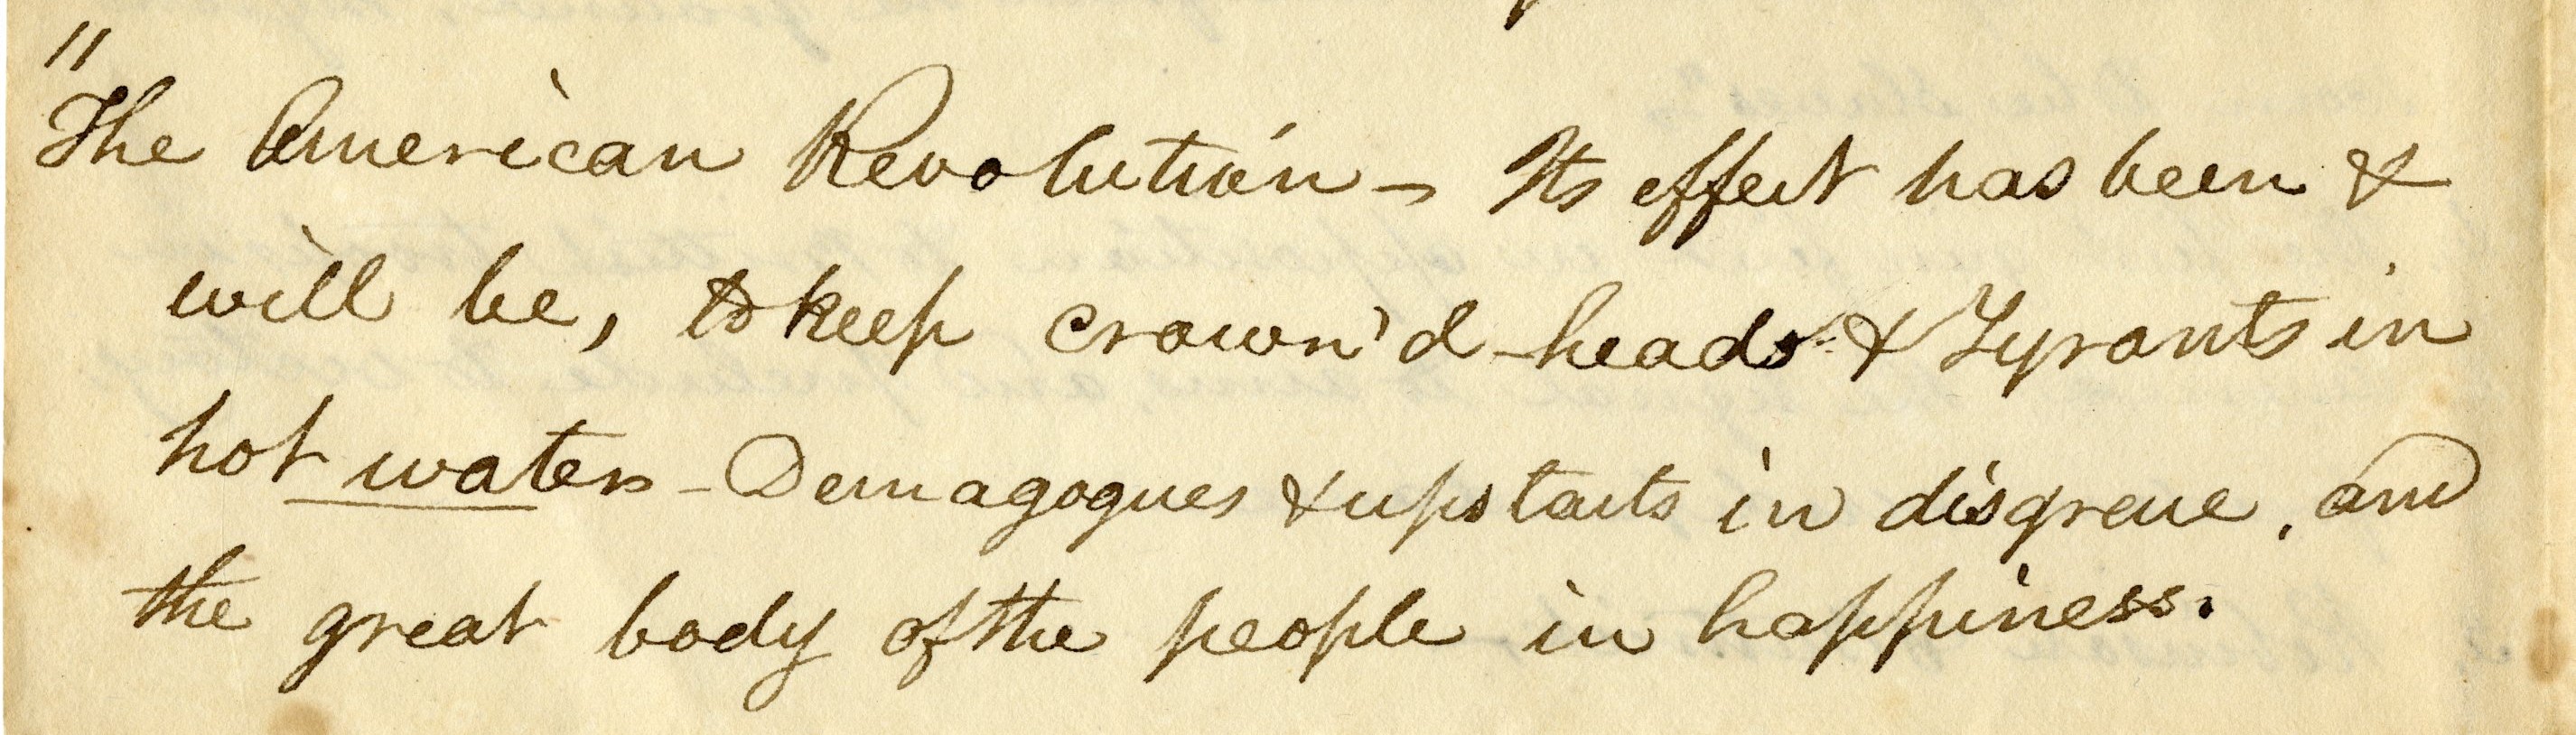 "
The American Revolution - Its effect has been &
will be, to keep crown'd heads & Tyrants in
hot water - Demagogues & upstarts in disgrace, and
the great body of the people in happiness.